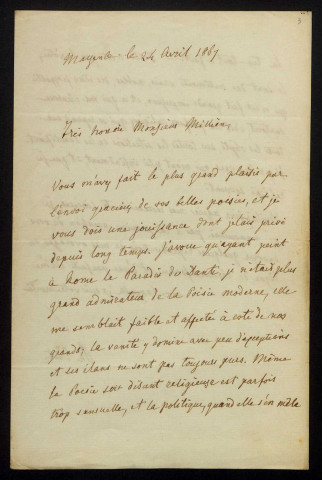 Mayence le 24 Avril 1867
Très honoré Monsieur Millien,
Vous m'avez fait le plus grand plaisir par
l'envoi gracieux de vos belles poesies, et je
vous dois une jouissance dont j'etais privé
depuis long temps. J'avoue qu'ayant peint
à Rome le Paradis du Dante, je n'etais plus
grand admirateur de la Poësie moderne, elle
me semblait faible et affectée à coté de nos
grands, la vanité y domine avec peu d'exceptions
et ses élans ne sont pas toujours purs. Même
la Poësie soit disant religieuse est parfois
trop sensuelle, et la politique, quand elle s'en mêle